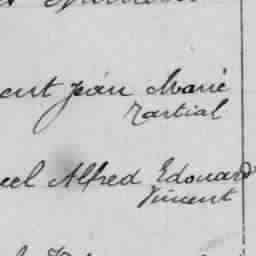 ent Jean Marie
Martial
uel Alfred Edouard
Vincent